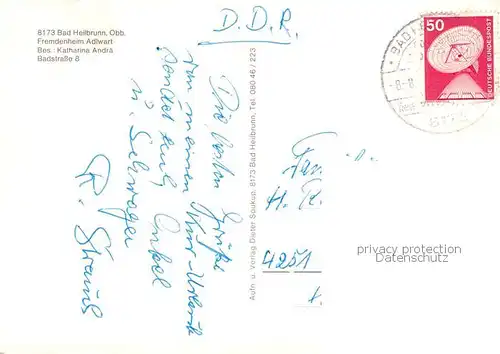 8173 Bad Heilbrunn, Obb.
Fremdenheim Adlwart
Bes.: Katharina Andrä
Badstraße 8
D.D.R.
50
DEUTSCHE BUNDESPOST
BAD
8173
Die besten Grüße
von meinem Kur-Urlaub
sendet euch Onkel
u. Schwager
R. Strauß
Aufn. u. Verlag Dieter Spukup, 8173 Bad Heilbrunn, Tel. 080 46 / 223
Fam.
H. R.
4251
privacy protection
Datenschutz